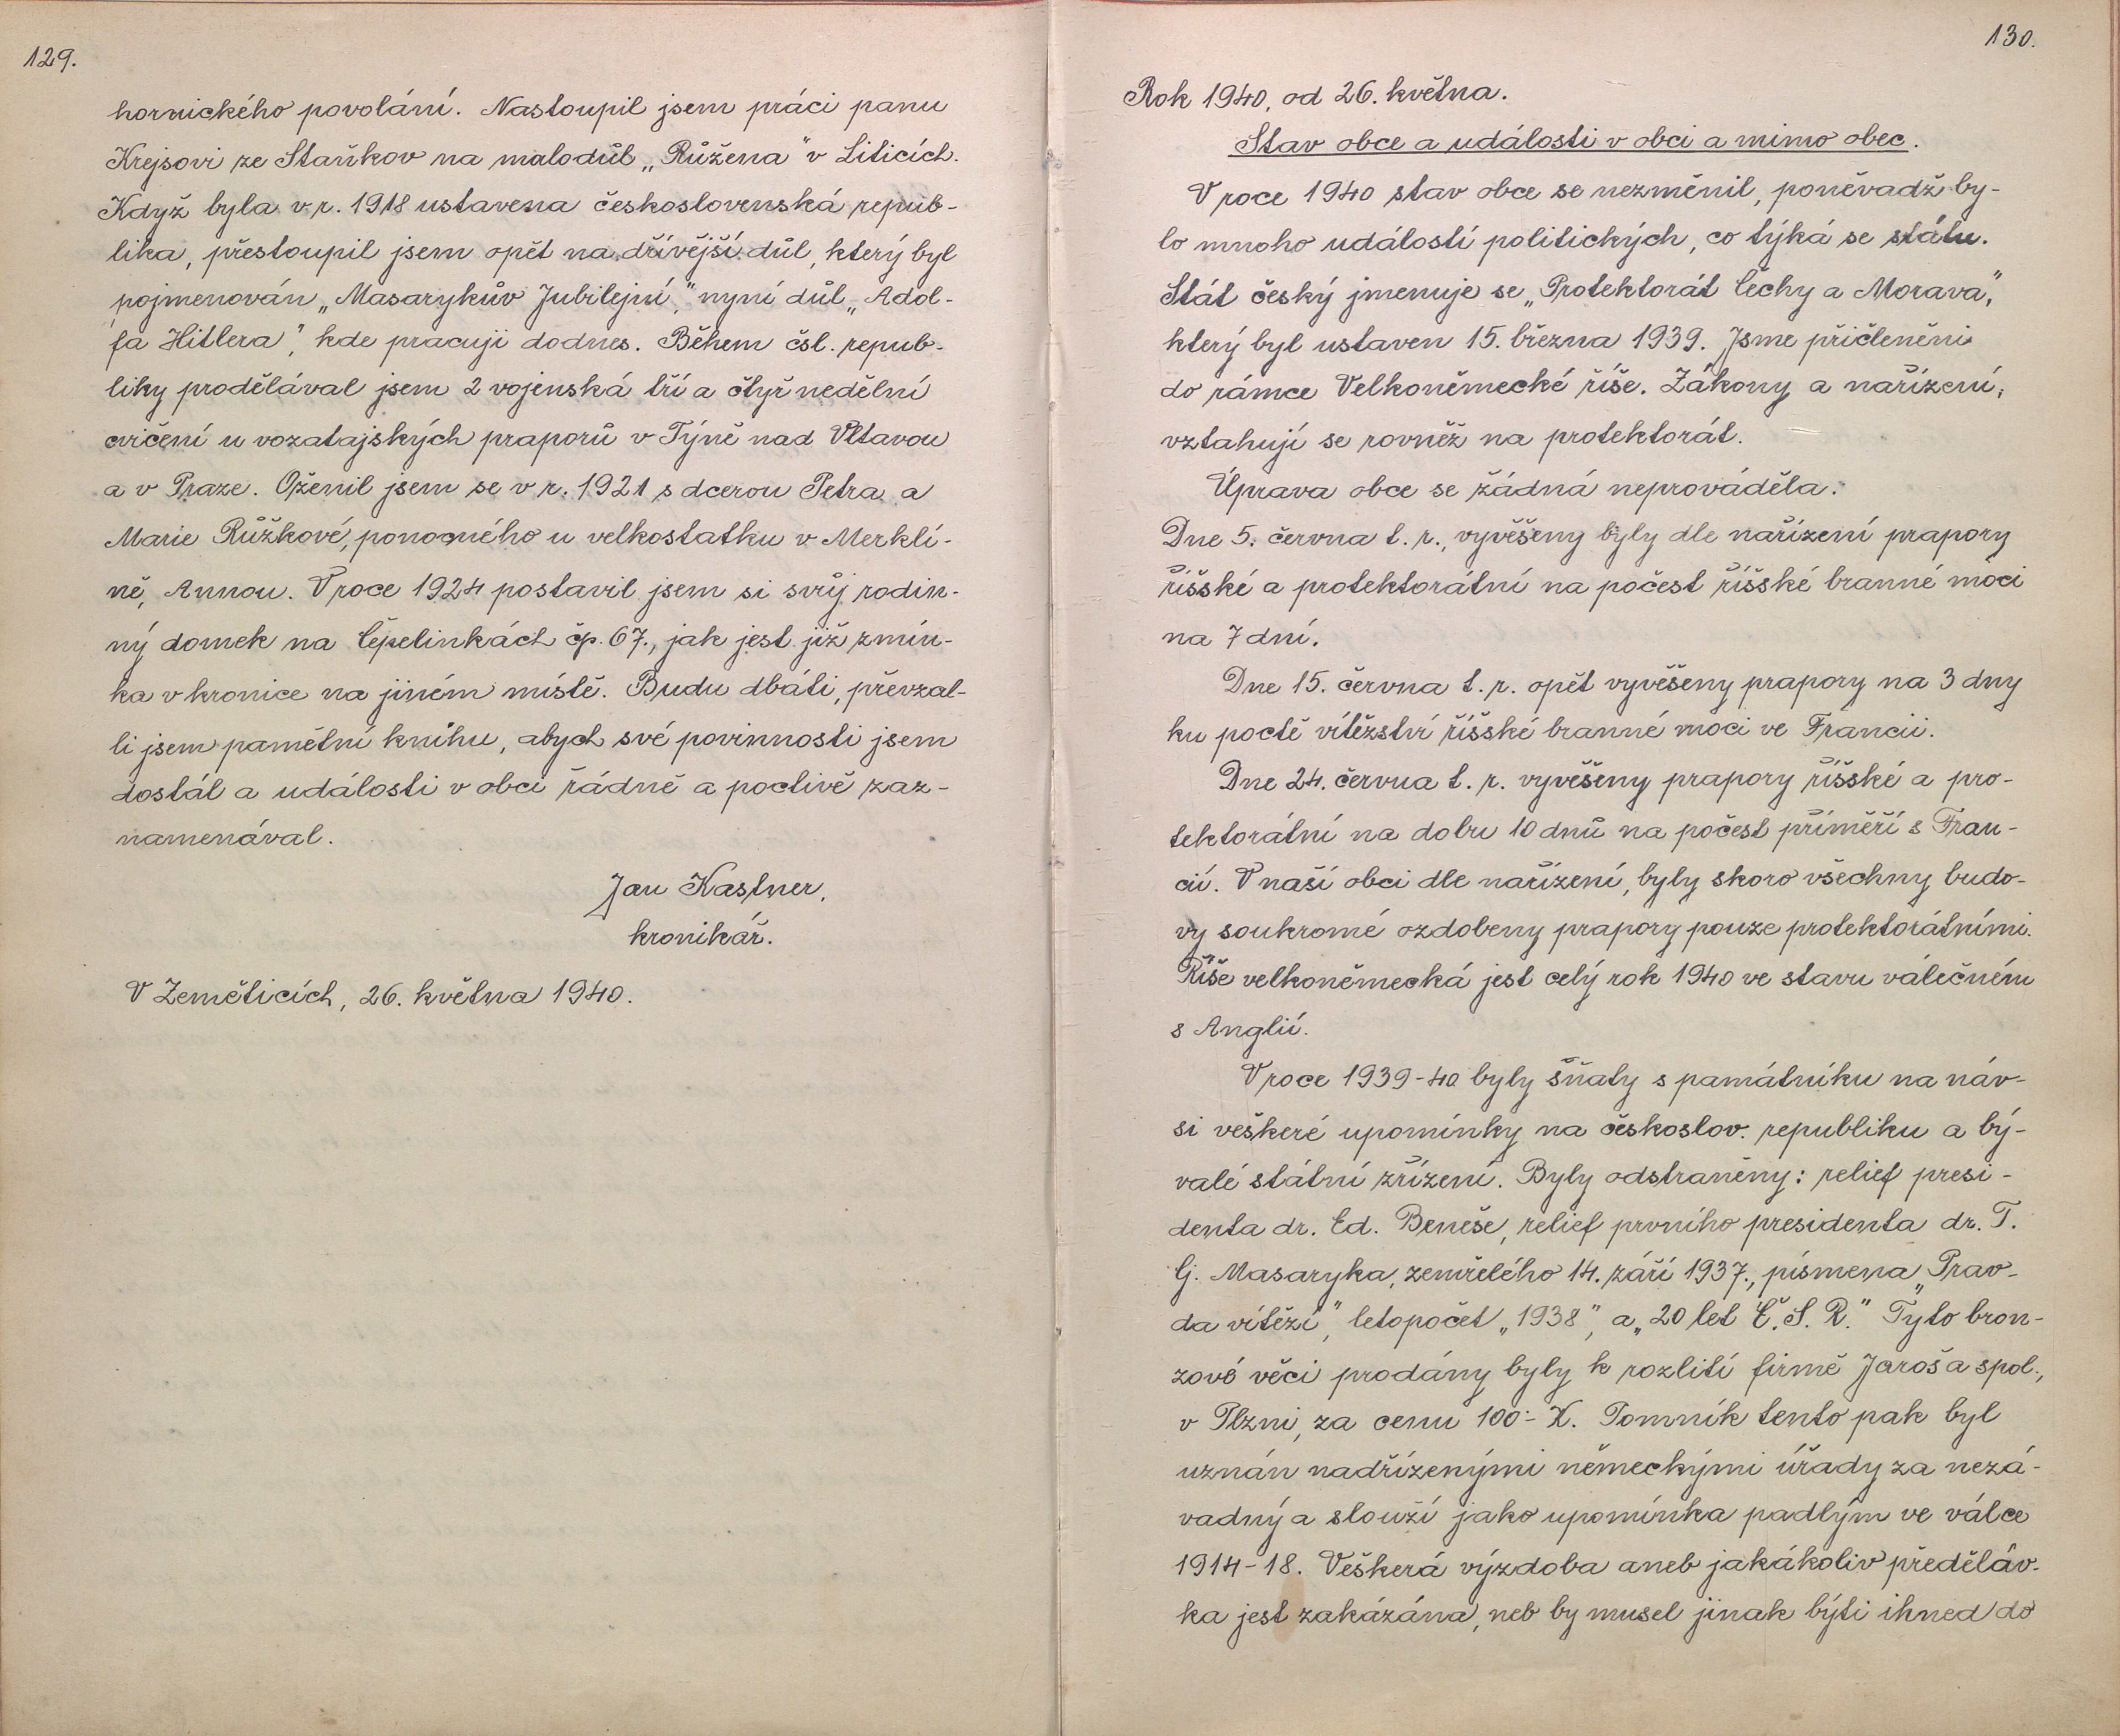 129.
hornického povolání. Nastoupil jsem práci panu
Krejsovi ze Staňkov na malodůl „Růžena" v Liticích.
Když byla v r. 1918 ustavena československá repub-
lika, přestoupil jsem opět na dřívější důl, který byl
pojmenován „Masarykův Jubilejní," nyní důl „Adol-
fa Hitlera", kde pracuji dodnes. Během čsl. repub-
liky prodělával jsem 2 vojenská tří a čtyř nedělní
cvičení u vozatajských praporů v Týně nad Vltavou
a v Praze. Oženil jsem se v r. 1921 s dcerou Petra a
Marie Růžkové, ponocného u velkostatku v Merklí-
ně, Annou. V roce 1924 postavil jsem si svůj rodin-
ný domek na Čepelinkách čp. 67., jak jest již zmín-
ka v kronice na jiném místě. Budu dbáti, převzal-
li jsem pamětní knihu, abych své povinnosti jsem
dostál a události v obci řádně a poctivě zaz-
namenával.
Jan Kastner,
kronikář.
V Zeměticích, 26. května 1940.
130.
Rok 1940, od 26. května.
Stav obce a události v obci a mimo obec.
V roce 1940 stav obce se nezměnil, poněvadž by-
lo mnoho událostí politických, co týká se státu.
Stát český jmenuje se „Protektorát Čechy a Morava",
který byl ustaven 15. března 1939. Jsme přičleněni
do rámce Velkoněmecké říše. Zákony a nařízení,
vztahují se rovněž na protektorát.
Úprava obce se žádná neprováděla.
Dne 5. června t. r., vyvěšeny byly dle nařízení prapory
říšské a protektorátní na počest říšské branné moci
na 7 dní.
Dne 15. června t. r. opět vyvěšeny prapory na 3 dny
ku poctě vítězství říšské branné moci ve Francii.
Dne 24. června t. r. vyvěšeny prapory říšské a pro-
tektorátní na dobu 10 dnů na počest příměří s Fran-
cií. V naší obci dle nařízení, byly skoro všechny budo-
vy soukromé ozdobeny prapory pouze protektorátními.
Říše velkoněmecká jest celý rok 1940 ve stavu válečném
s Anglií.
V roce 1939-40 byly sňaty s památníku na náv-
si veškeré upomínky na českoslov. republiku a bý-
valé státní zřízení. Byly odstraněny: relief presi-
denta dr. Ed. Beneše, relief prvního presidenta dr. T.
G. Masaryka, zemřelého 14. září 1937., písmena „Prav-
da vítězí", letopočet „1938", a „20 let Č. S. R." Tyto bron-
zové věci prodány byly k rozlití firmě Jaroš a spol.,
v Plzni, za cenu 100·- K. Pomník tento pak byl
uznán nadřízenými německými úřady za nezá-
vadný a slouží jako upomínka padlým ve válce
1914-18. Veškerá výzdoba aneb jakákoliv předěláv-
ka jest zakázána, neb by musel jinak býti ihned do